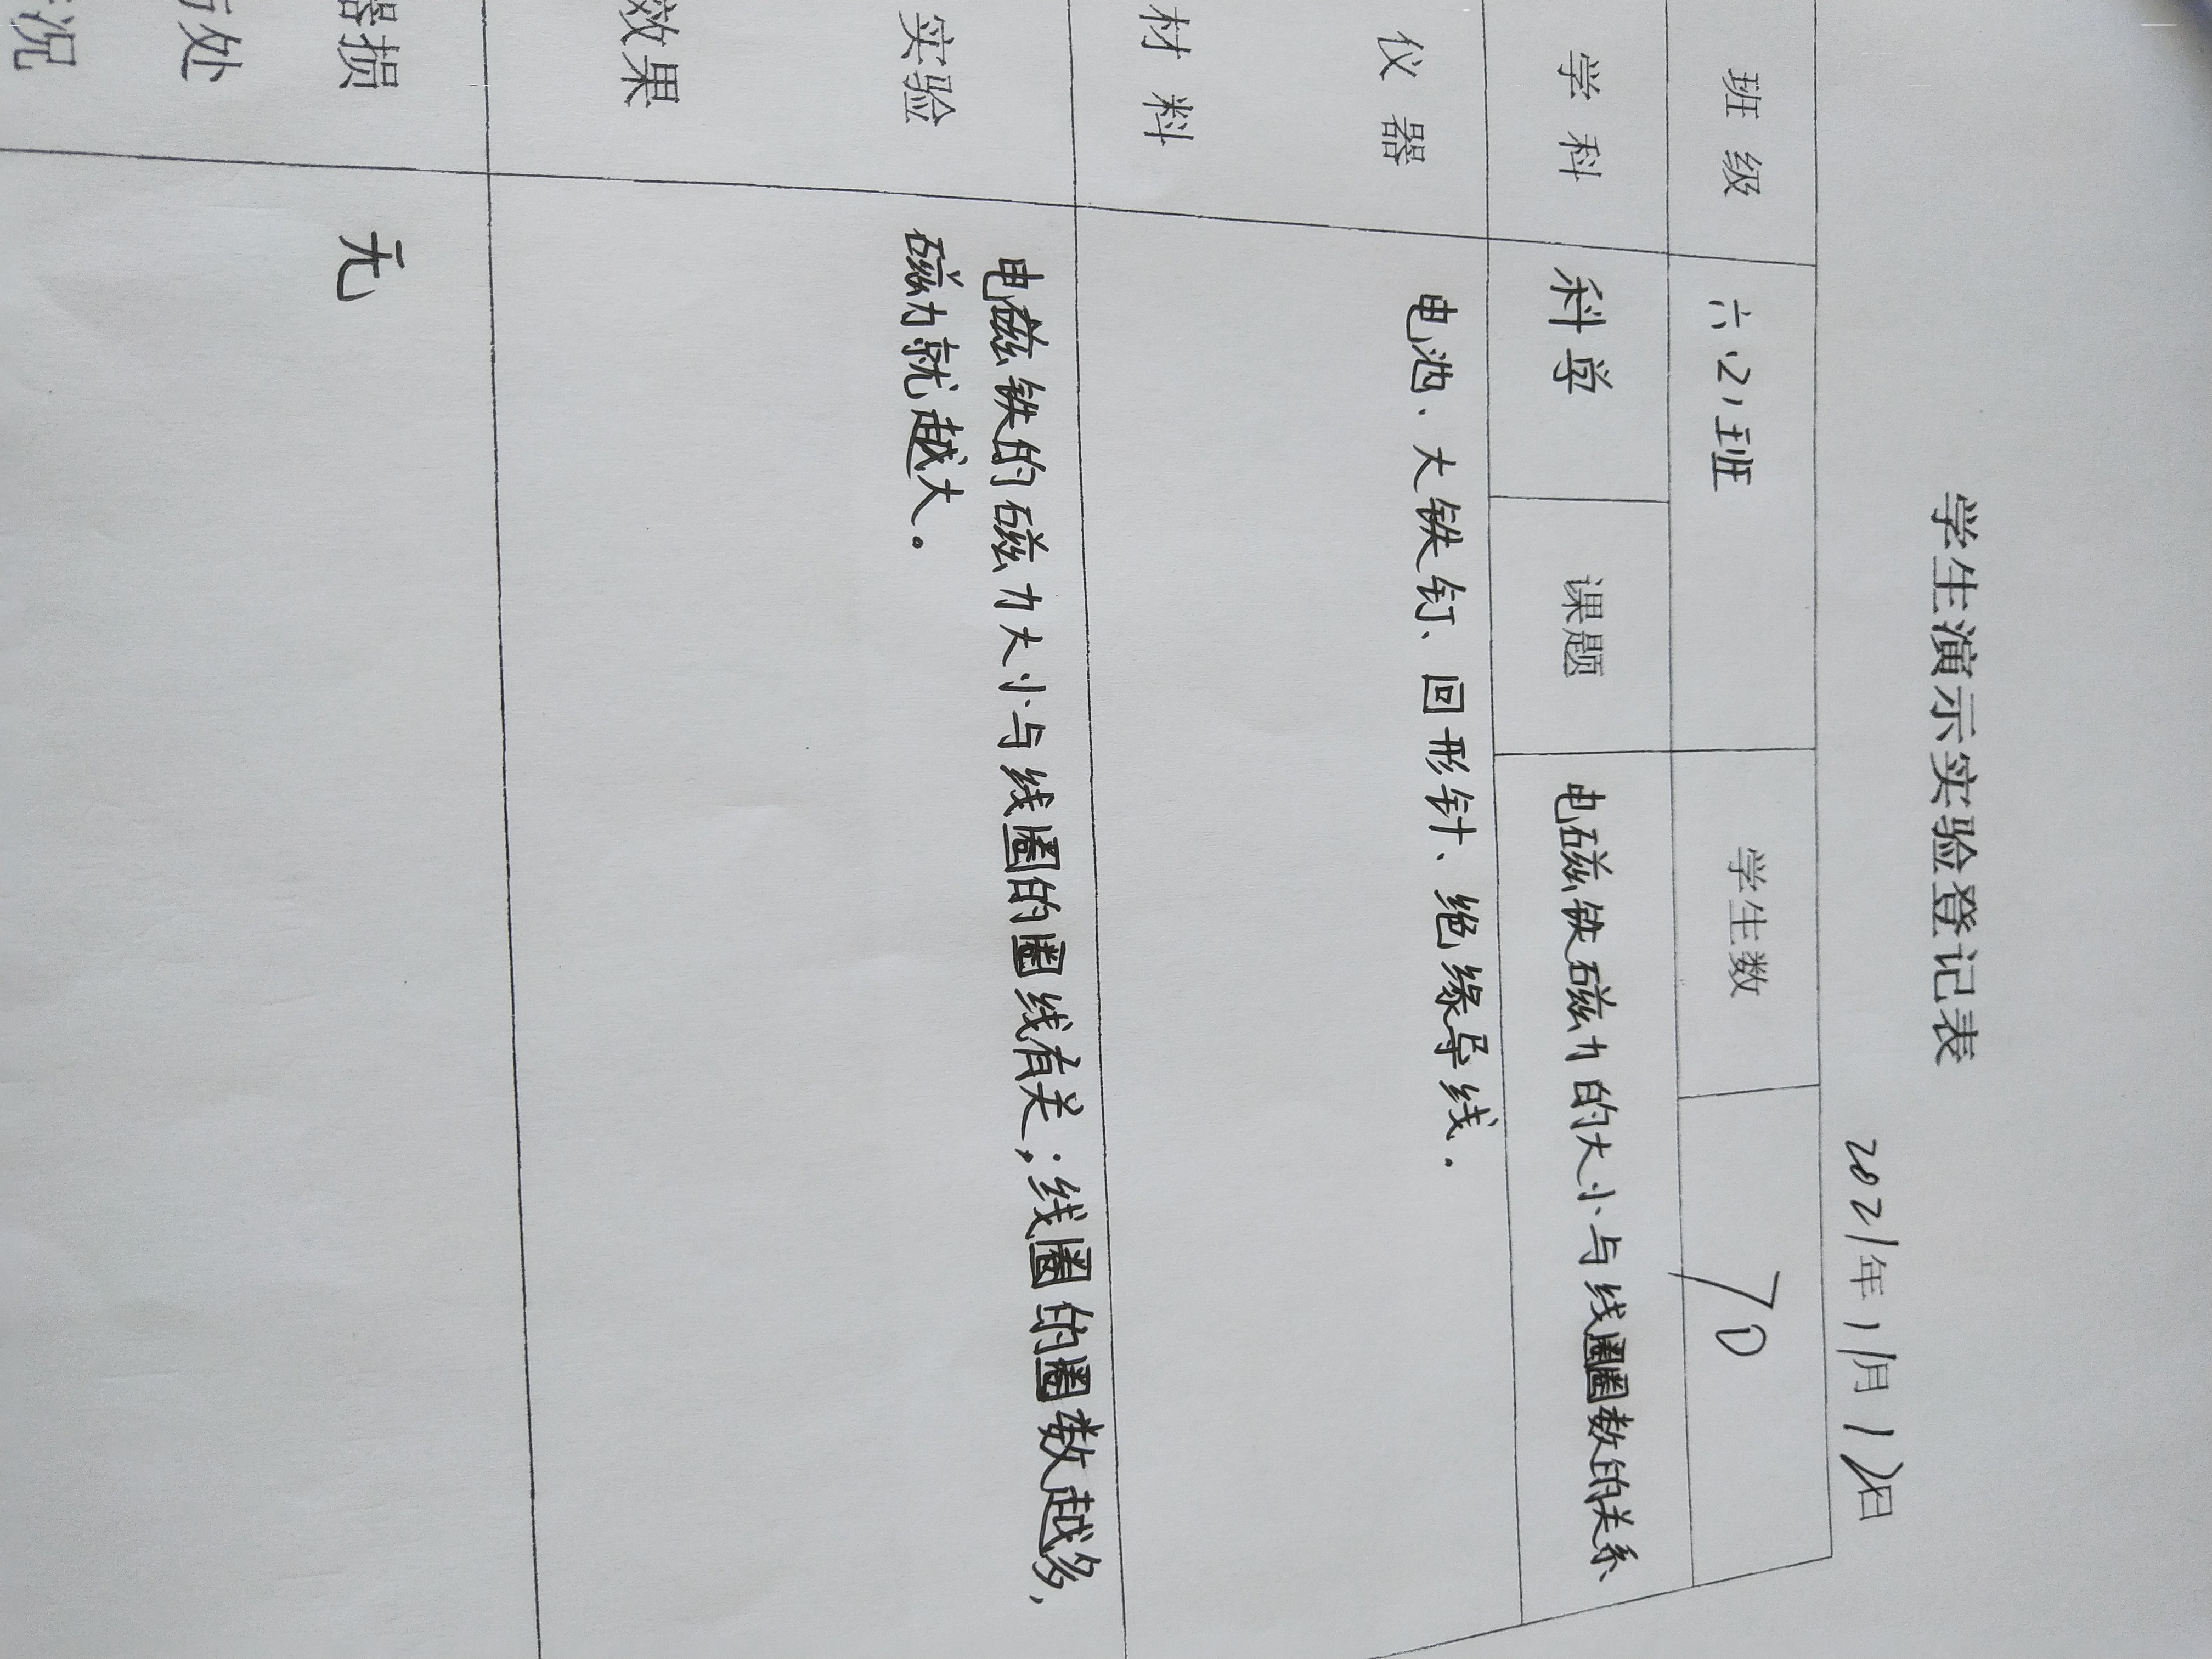 学生演示实验登记表
2021年1月12日
班 级 六(2)班 学生数 70
学 科 科学 课题 电磁铁磁力的大小与线圈圈数的关系
仪 器
材 料
电池、大铁钉、回形针、绝缘导线.
实验
效果
电磁铁的磁力大小与线圈的圈线有关;线圈的圈数越多,
磁力就越大。
器损
处
况
无